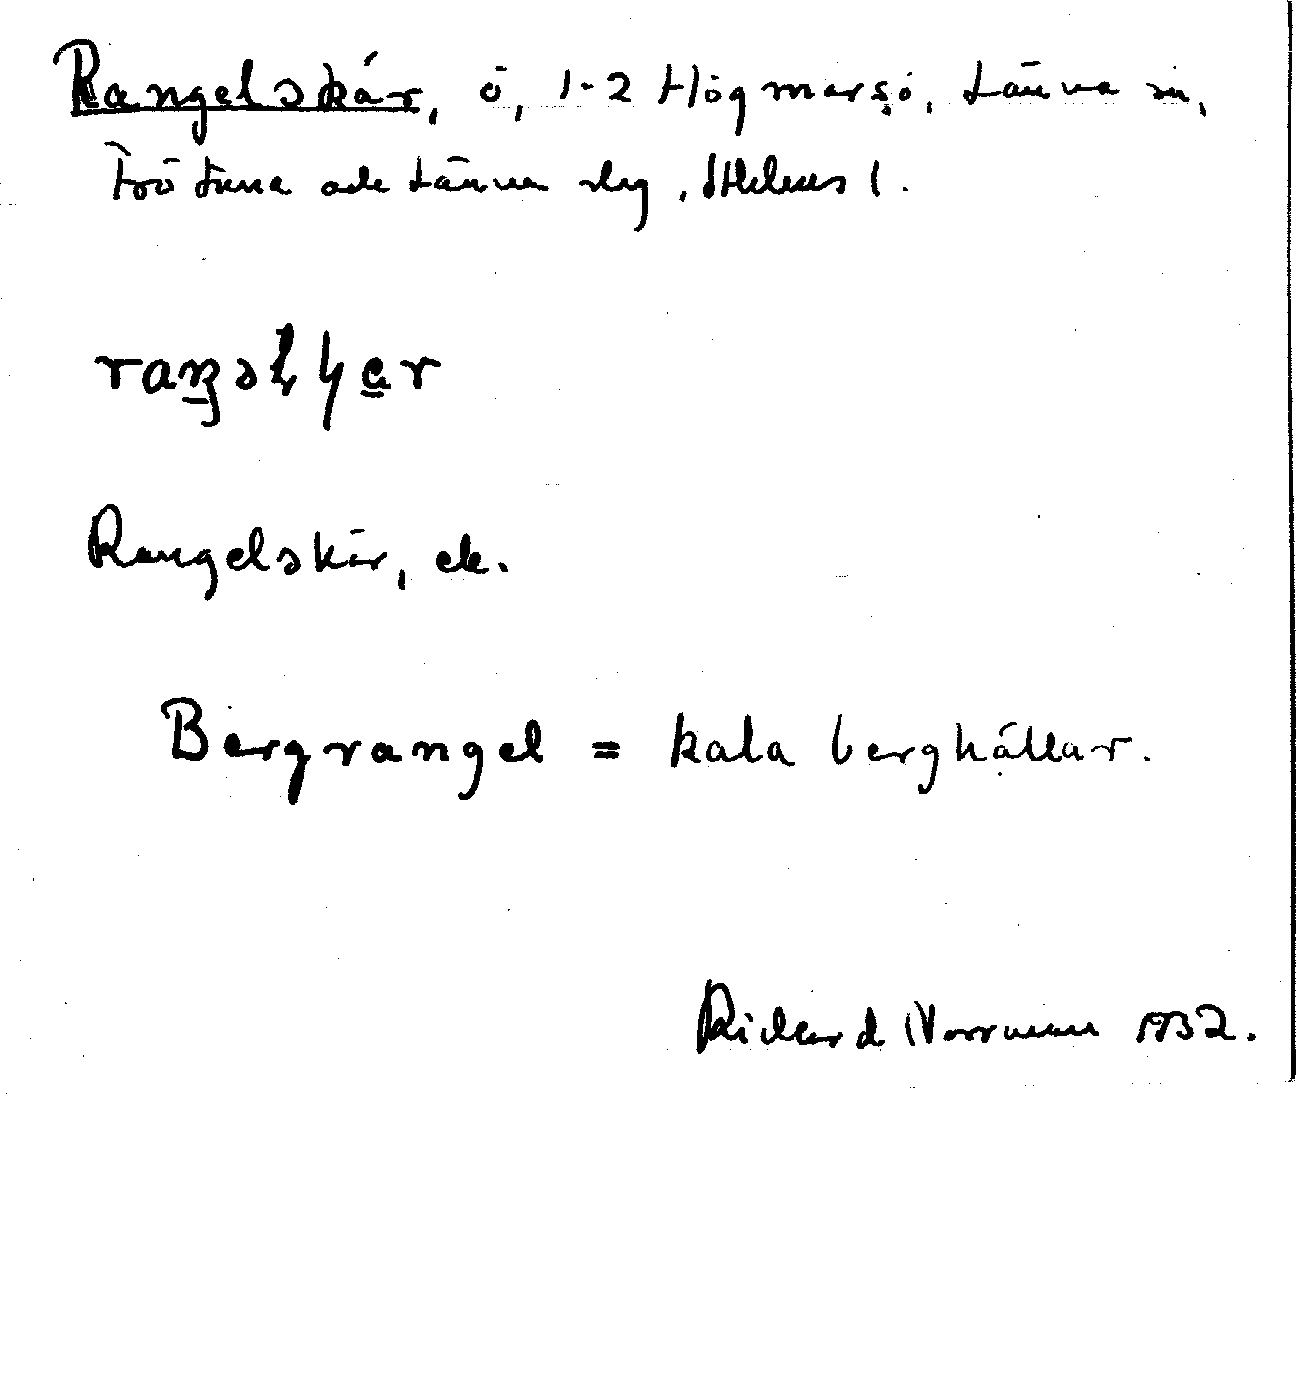 Rangelskär, ö, 1-2 Högmarsö, Länna sn,
Frötuna och Länna slg, Sthlms l.
raŋəlʂꞔ̱ær
Rangelskär, ek.
Bergrangel = kala berghällar.
Richard Norrman 1932.